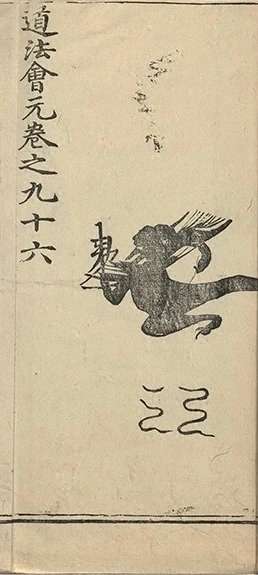 道法會元卷之九十六